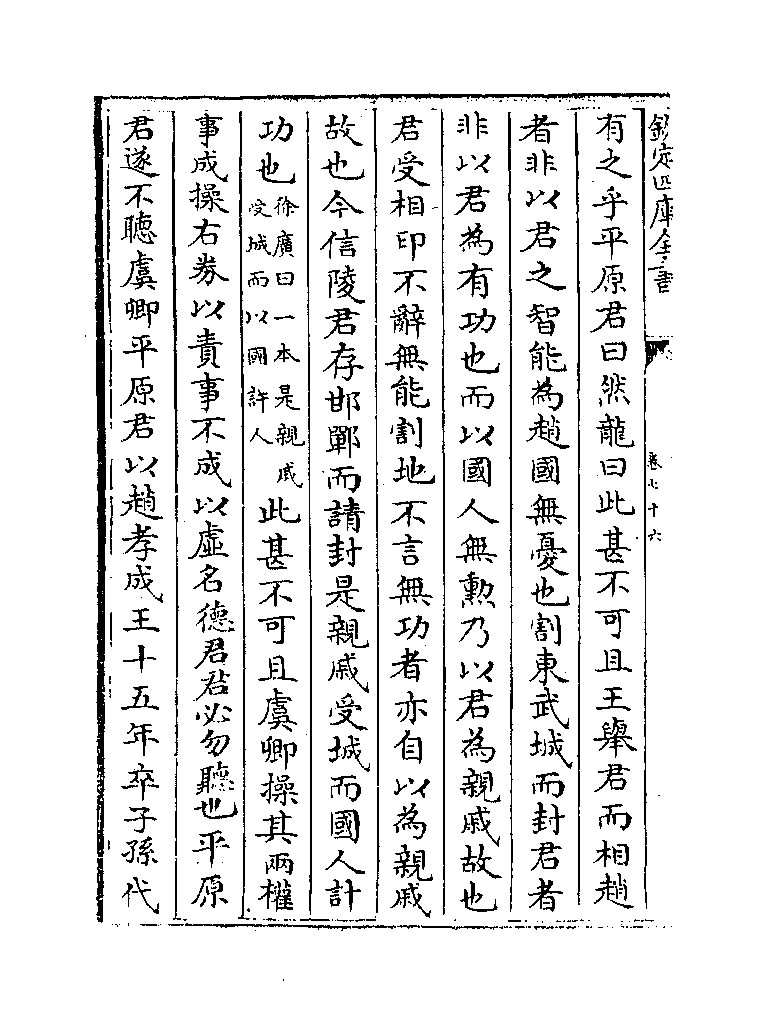 欽定四庫全書
卷七十六
有之乎平原君曰然龍曰此甚不可且王舉君而相趙
者非以君之智能為趙國無有也割東武城而封君者
非以君為有功也而以國人無勲乃以君為親戚故也
君受相印不辭無能割地不言無功者亦自以為親戚
故也今信陵君存邯鄲而請封是親戚受城而國人計
功也徐廣曰一本是親戚受城而以國許人此甚不可且虞卿操其兩權
事成操右劵以責事不成以虛名德君君必勿聽也平原
君遂不聽虞卿平原君以趙孝成王十五年卒子孫代